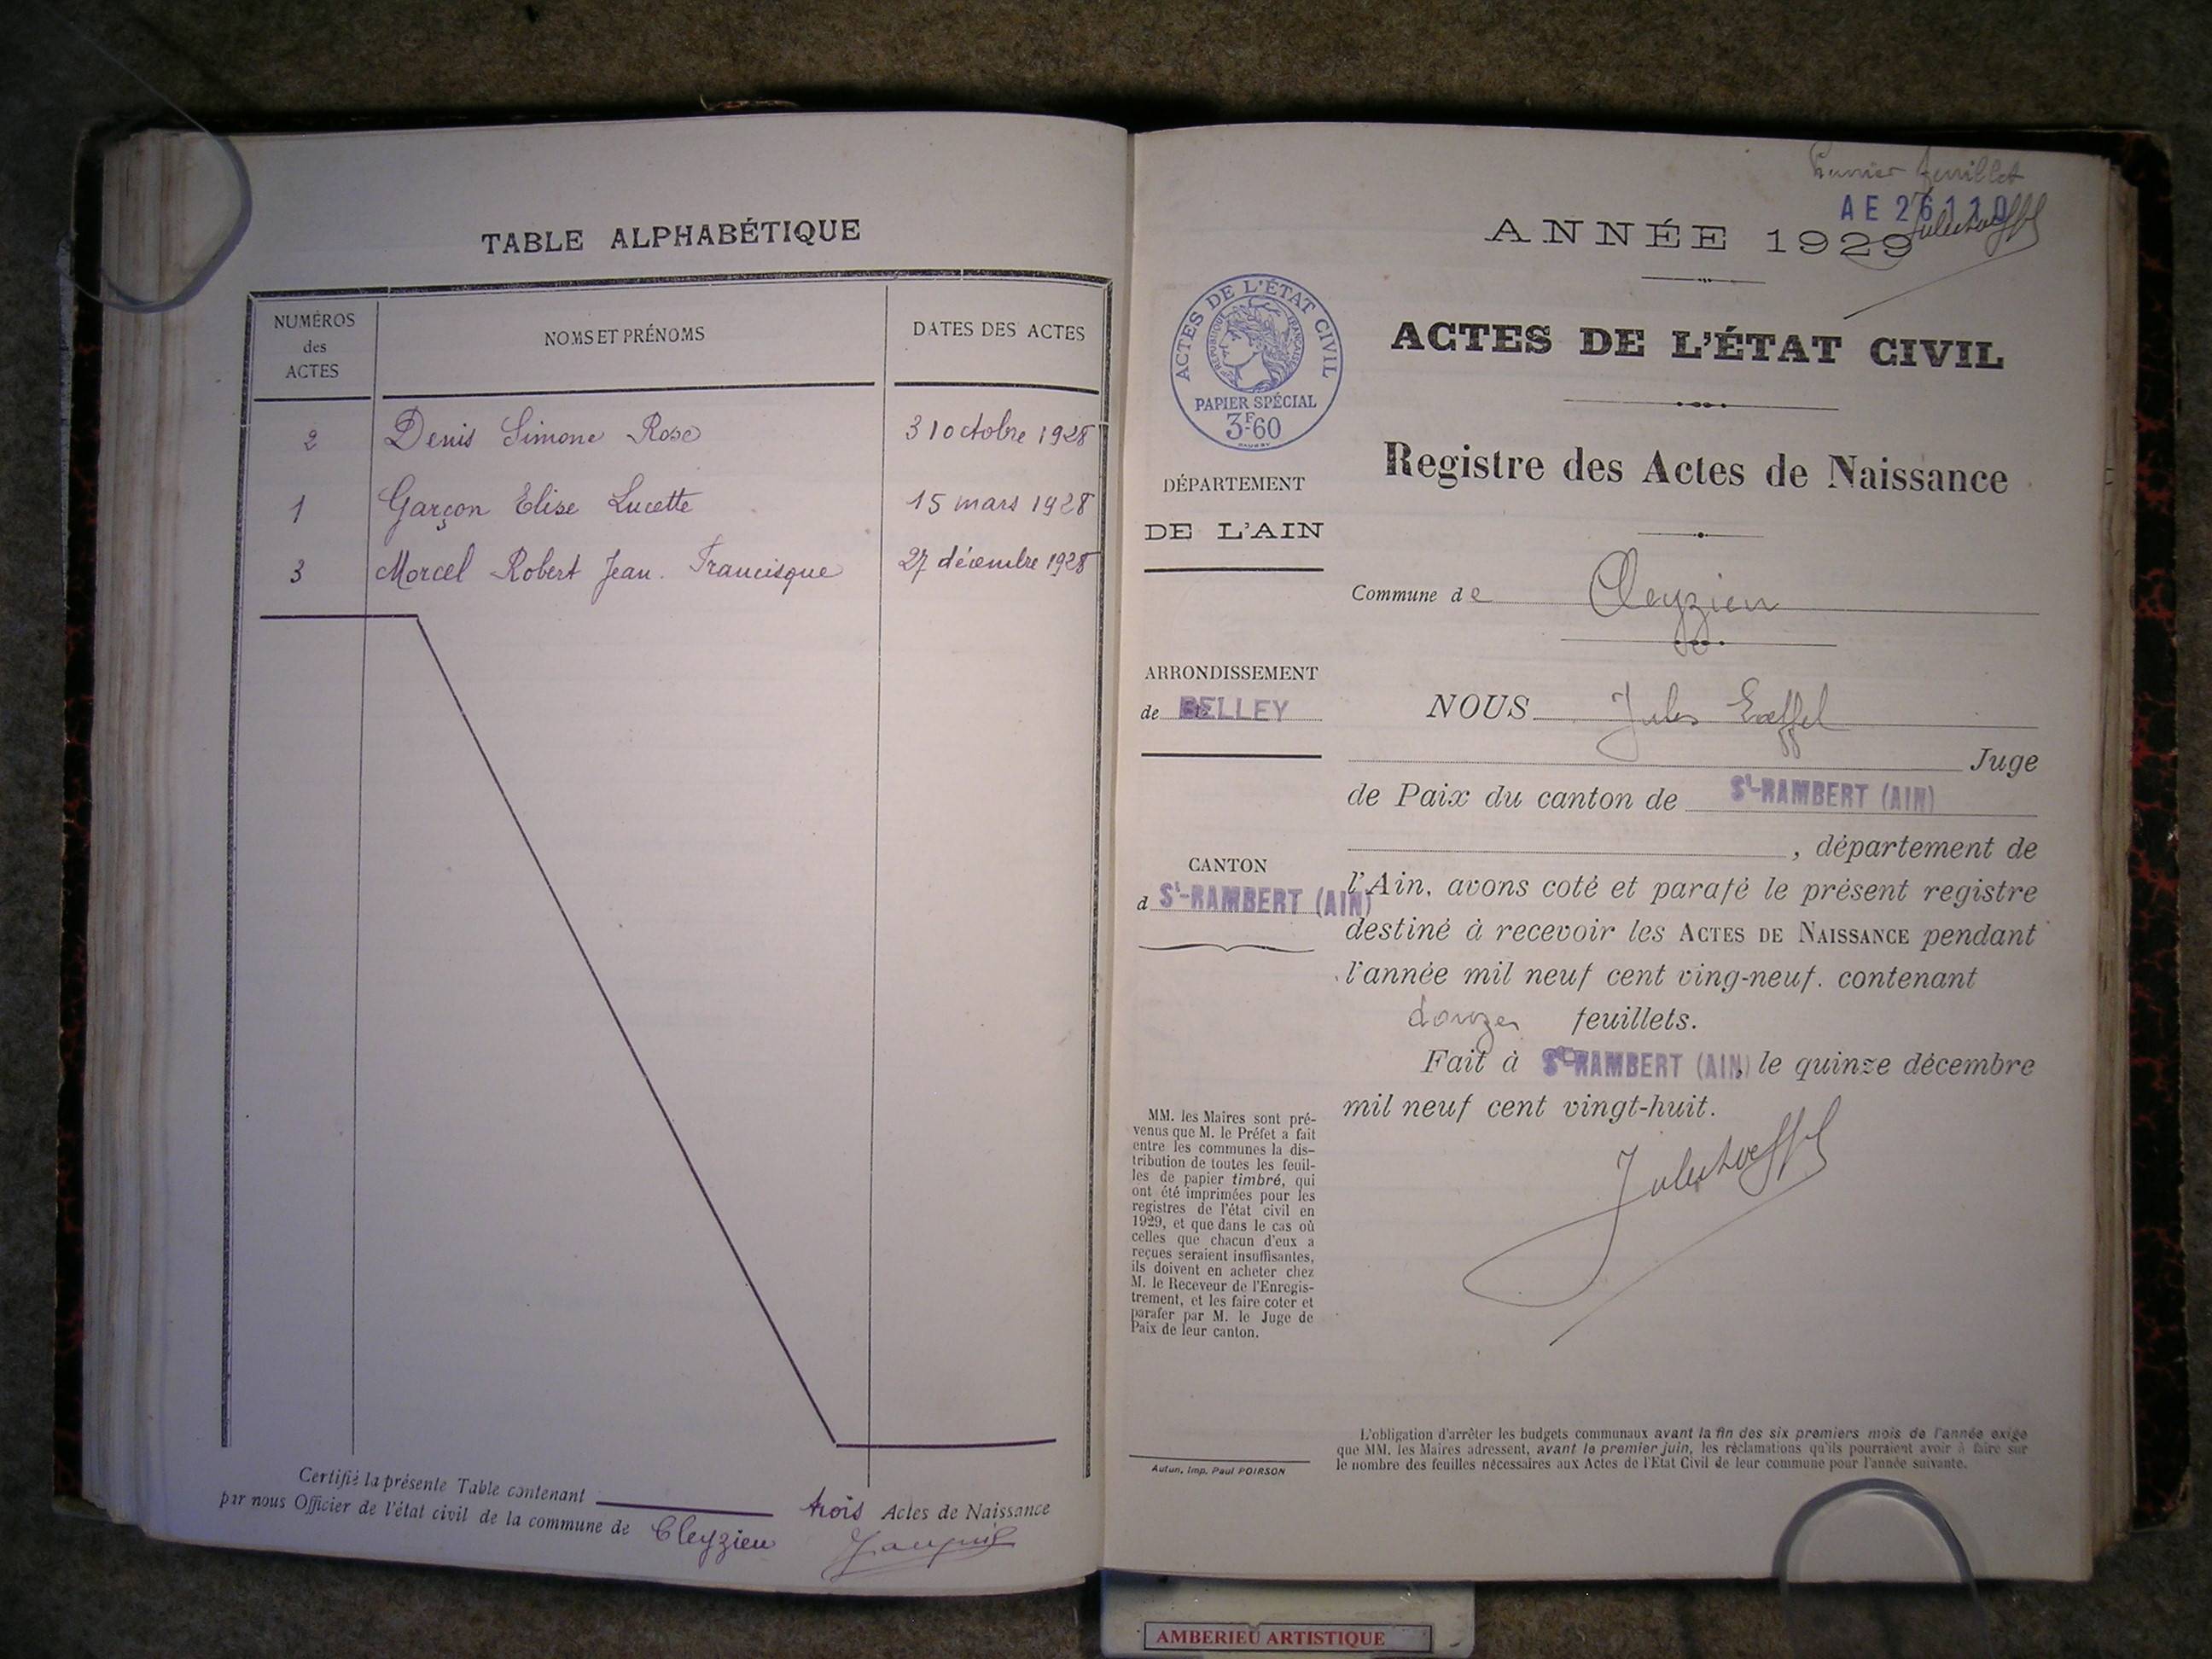 TABLE ALPHABÉTIQUE
NUMÉROS des ACTES
NOMS ET PRÉNOMS
DATES DES ACTES
2 Denis Simone Rose 31 octobre 1928
1 Garçon Elise Lucette 15 mars 1928
3 Morcel Robert Jean. Francisque 27 décembre 1928
Certifié la présente Table contenant trois Actes de Naissance
par nous Officier de l'état civil de la commune de Cleyzieu
Premier feuillet
AE 26110
ANNÉE 1929
ACTES DE L'ÉTAT CIVIL
RÉPUBLIQUE FRANÇAISE
PAPIER SPÉCIAL
3F60
ACTES DE L'ÉTAT CIVIL
Registre des Actes de Naissance
DÉPARTEMENT
DE L'AIN
Commune de Cleyzieu
ARRONDISSEMENT
de BELLEY
NOUS Jules Loeffel
Juge
de Paix du canton de St-RAMBERT (AIN)
, département de
CANTON
d St-RAMBERT (AIN)
l'Ain, avons coté et parafé le présent registre
destiné à recevoir les ACTES DE NAISSANCE pendant
l'année mil neuf cent ving-neuf. contenant
douze feuillets.
Fait à St-RAMBERT (AIN) le quinze décembre
mil neuf cent vingt-huit.
Jules Loeffel
MM. les Maires sont pré-
venus que M. le Préfet a fait
entre les communes la dis-
tribution de toutes les feuil-
les de papier timbré, qui
ont été imprimées pour les
registres de l'état civil en
1929, et que dans le cas où
celles que chacun d'eux a
reçues seraient insuffisantes,
ils doivent en acheter chez
M. le Receveur de l'Enregis-
trement, et les faire coter et
parafer par M. le Juge de
Paix de leur canton.
Autun, Imp. Paul POIRSON
L'obligation d'arrêter les budgets communaux avant la fin des six premiers mois de l'année exige
que MM. les Maires adressent, avant le premier juin, les réclamations qu'ils pourraient avoir à faire sur
le nombre des feuilles nécessaires aux Actes de l'Etat Civil de leur commune pour l'année suivante.
AMBERIEU ARTISTIQUE